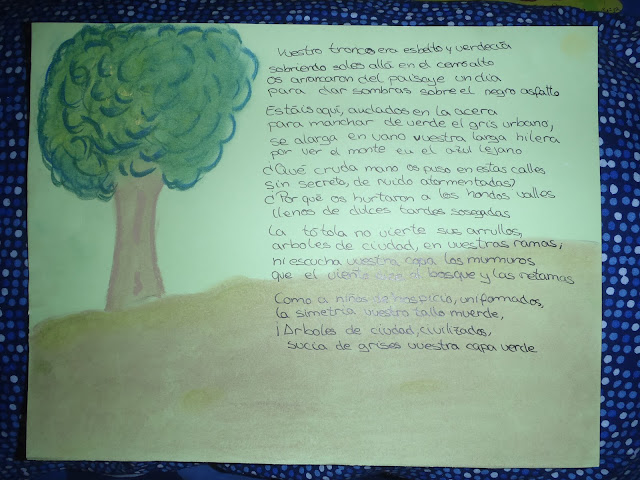 Vuestro tronco era esbelto y verdecía
sobriendo soles allá en el cerro alto
os arrancaron del paisaje un día
para dar sombras sobre el negro asfalto
Estáis aquí, anclados en la acera
para manchar de verde el gris urbano,
se alarga en vano vuestra larga hilera
por ver el monte en el azul lejano
¿Qué cruda mano os puso en estas calles
sin secreto, de ruido atormentadas?
¿Por qué os hurtaron a los hondos valles
llenos de dulces tardes sosegadas
La tótola no vierte sus arrullos,
arboles de ciudad, en vuestras ramas;
ni escucha vuestra copa los murmuros
que el viento al bosque y las retamas
Como a niños de hospicio, uniformados,
la simetria vuestro tallo muerde,
¡Arboles de ciudad, civilizados,
sucia de grises vuestra capa verde